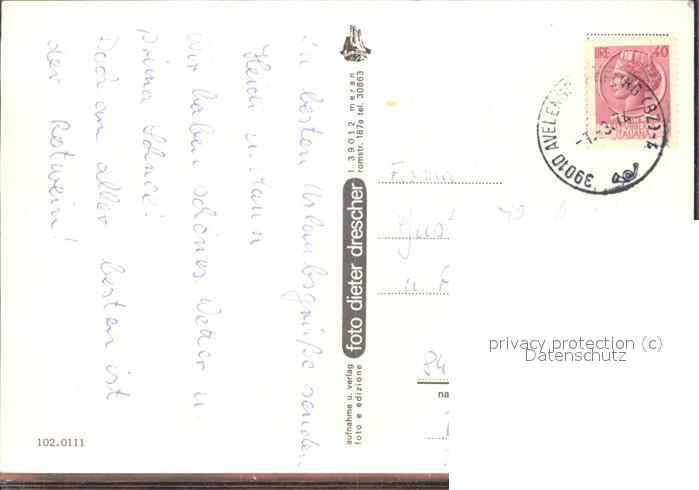 Die besten Urlaubsgrüße senden
Heidi u. Mann
Wir haben schönes Wetter u.
prima Schnee!
Doch am aller besten ist
der Rotwein!
102.0111
aufnahme u. verlag
foto e edizione
foto dieter drescher
I 39012 meran
romstr. 187a tel. 30863
LIRE 40
REPUBBLICA
ITALIANA
39010 AVELENGO
(BZ)
Firma
u.
84
na
privacy protection (c)
Datenschutz